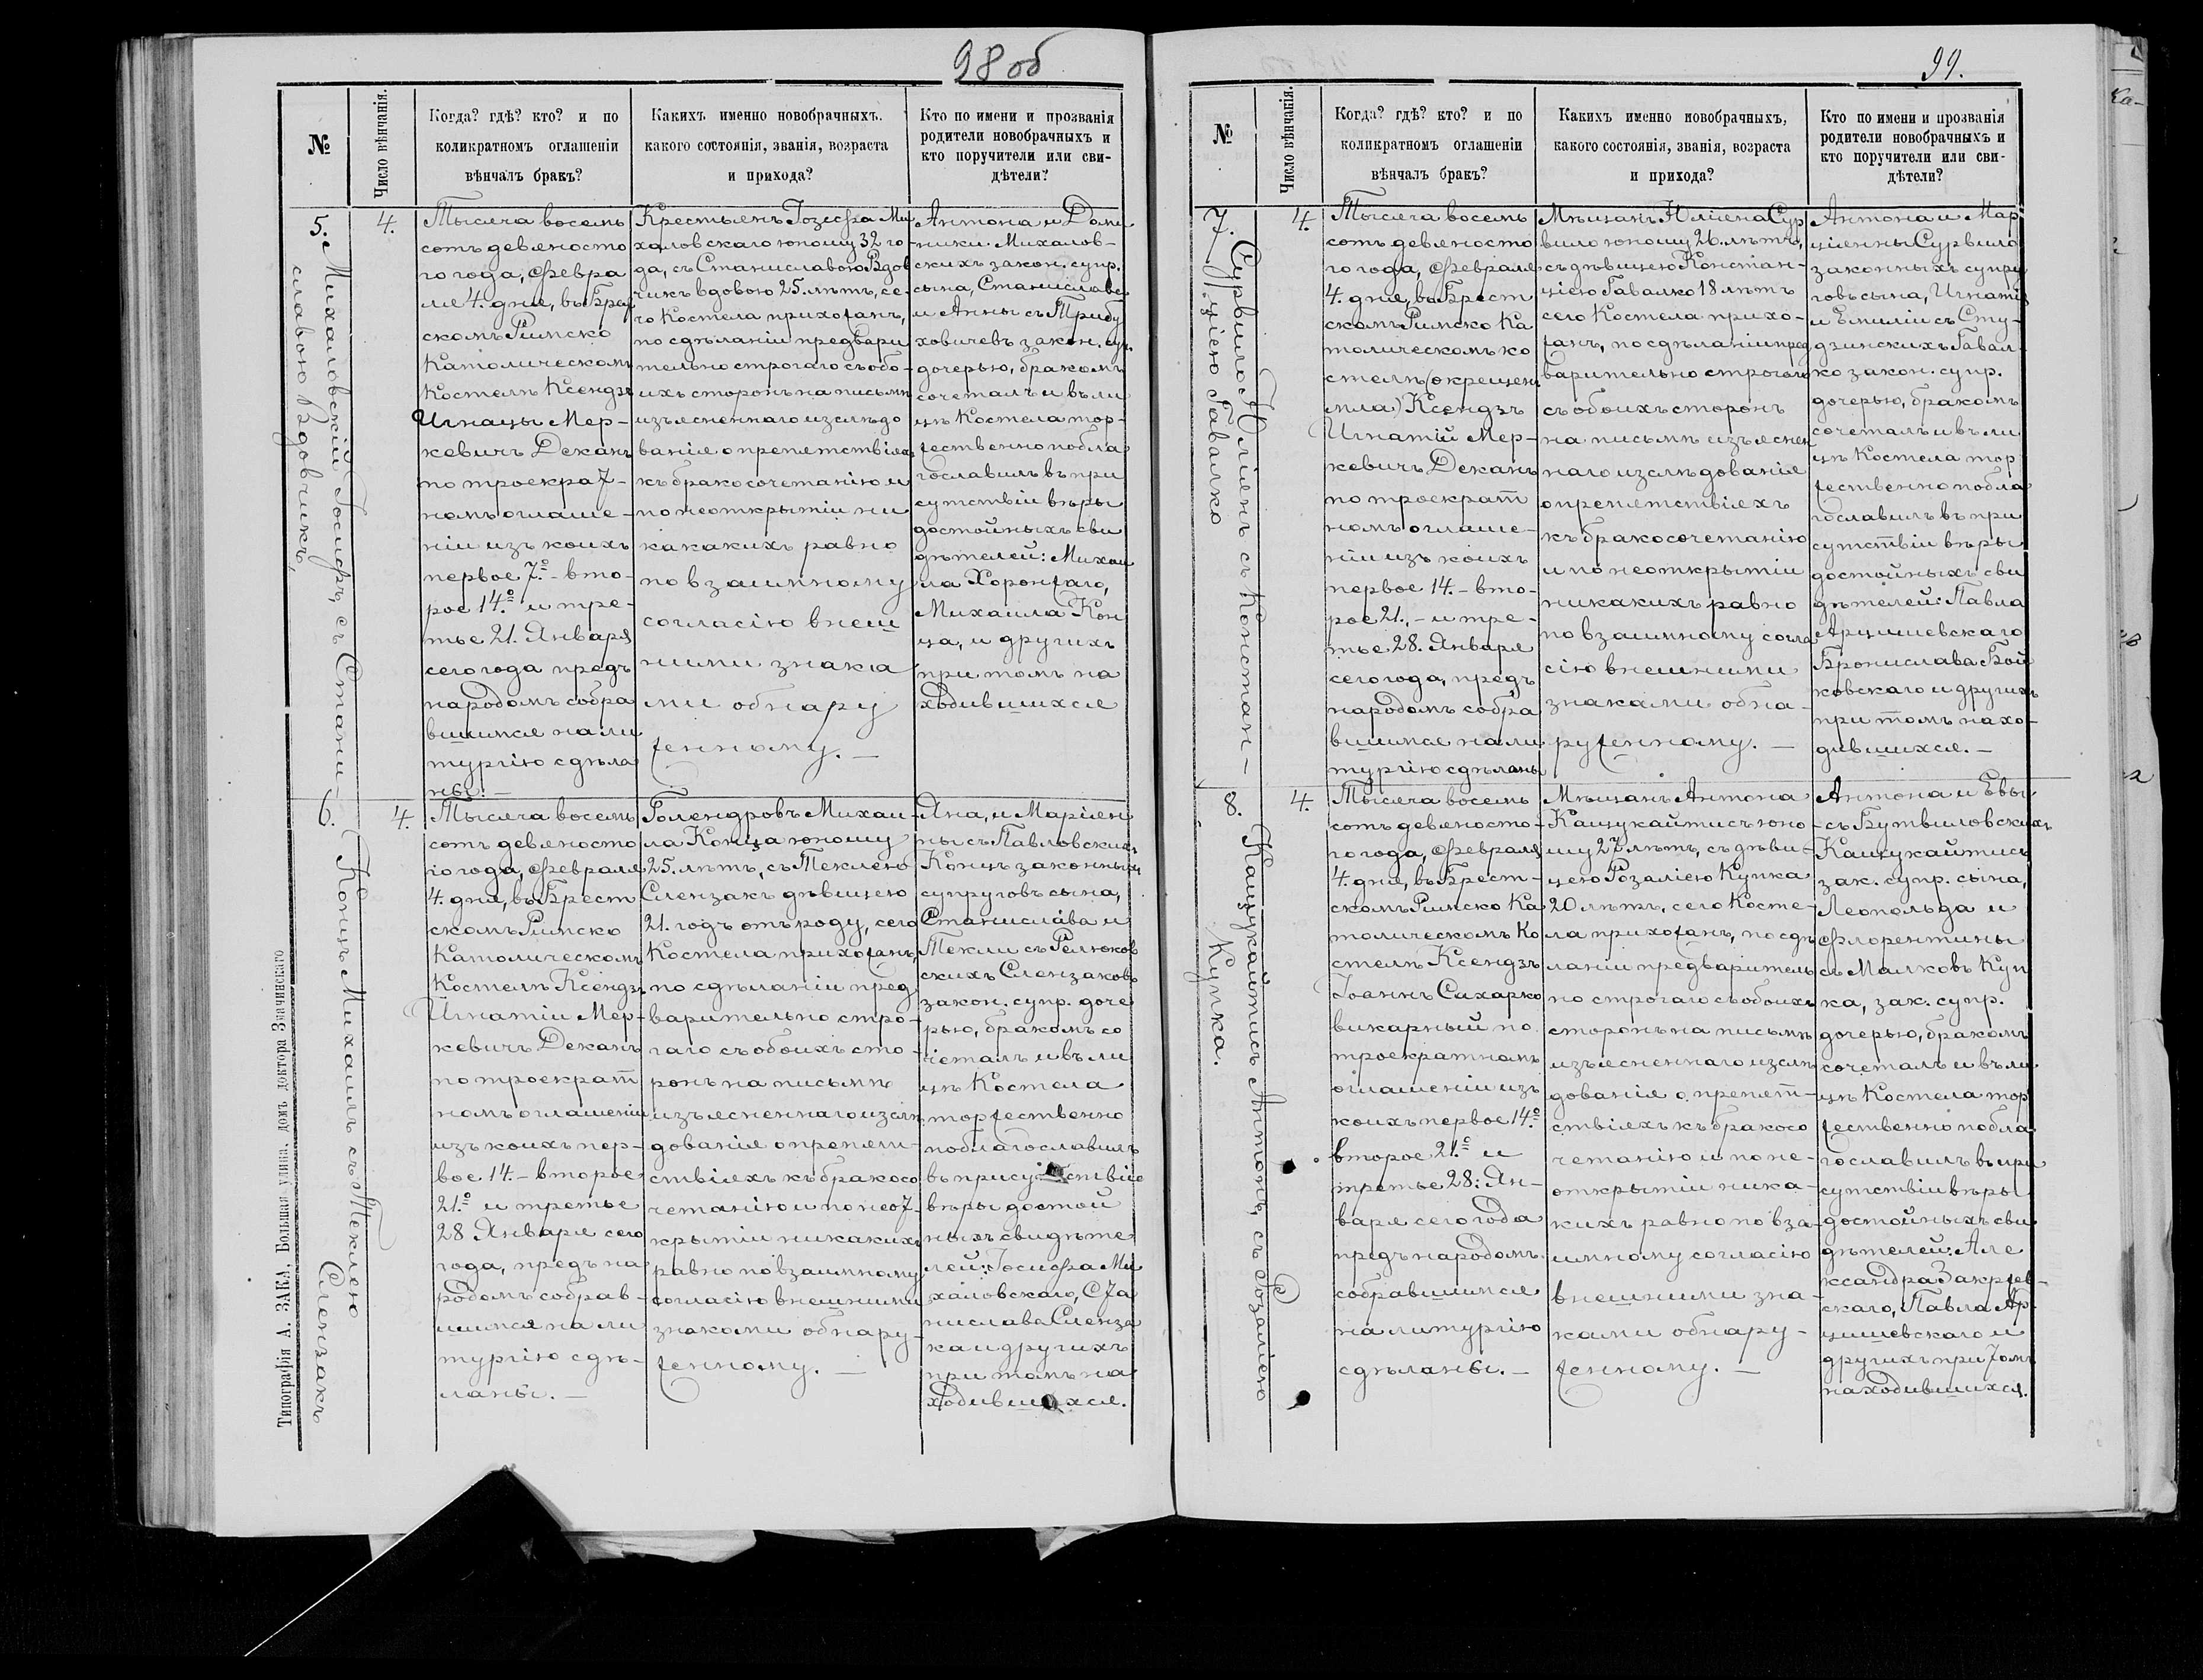 98 об
№
Число вѣнчанія.
Когда? гдѣ? кто? и по
коликратномъ оглашеніи
вѣнчалъ бракъ?
Какихъ именно новобрачныхъ.
какого состоянія, званія, возраста
и прихода?
Кто по имени и прозванія
родители новобрачныхъ и
кто поручители или сви-
дѣтели?
5.
Михаловскій Іосифъ, съ Стани-
славою Вдовчикъ,
4.
Тысяча восемь
сотъ девяносто
го года, Февра
ля 4. дня, въ Брест
скомъ Римско
Католическомъ
Костелѣ Ксендзъ
Игнацы Мер-
кевичъ Деканъ
по троекрат-
номъ оглаше-
ніи изъ коихъ
первое 7.º - вто-
рое 14.º и тре-
тье 21. Января
сего года предъ
народомъ собра
вшимся на ли
тургію сдѣла
ны. -
Крестьянъ Іозефа Ми
халовскаго юношу 32 го
да, съ Станиславою Вдов
чикъ вдовою 25. лѣтъ, се-
го Костела прихожанъ,
по сдѣланіи предвари
тельно строгаго съ обо-
ихъ сторонъ на письмѣ
изъясненнаго изслѣдо
ванія о препятствіяхъ
къ бракосочетанію и
по неоткрытіи ни
какакихъ равно
по взаимному
согласію внеш
ними знака
ми обнару
женному. -
Антона и Доми
ники Михалов-
скихъ закон. супр.
сына, Станислава
и Анны съ Трибу
ховичевъ закон. суп.
дочерью, бракомъ
сочеталъ и въ ли
цѣ Костела тор-
жественно побла
гославилъ въ при
сутствіи вѣры
достойныхъ сви
дѣтелей: Михаи
ла Хоронжаго,
Михаила Кон
ца, и другихъ
при томъ на
ходившихся
6.
Концъ Михаилъ съ Теклею
Слензакъ
4.
Тысяча восемь
сотъ девяносто
го года, Февраля
4. дня, въ Брест
скомъ Римско
Католическомъ
Костелѣ Ксендзъ
Игнатіи Мер-
кевичъ Деканъ
по троекрат
номъ оглашеніи
изъ коихъ пер-
вое 14. - второе
21.º и третье
28 Января сего
года, предъ на
родомъ собрав-
шимся на ли
тургію сдѣ-
ланы. -
Голендровъ Михаи
ла Конца юношу
25. лѣтъ, съ Теклею
Слензакъ дѣвицею
21. годъ отъ роду, сего
Костела прихожанъ,
по сдѣланіи пред
варительно стро-
гаго съ обоихъ сто-
ронъ на письмѣ
изъясненнаго изслѣ
дованія о препят-
ствіяхъ къ бракосо
четанію и по неот-
крытіи никакихъ
равно по взаимному
согласію внешними
знаками обнару-
женному. -
Яна, и Маріян
ны съ Павловскихъ
Концъ законныхъ
супруговъ сына,
Станислава и
Текли съ Релюков
скихъ Слензаковъ
закон. супр. доче
рью, бракомъ со
четалъ и въ ли
цѣ Костела
торжественно
поблагославилъ
въ присутствіи
вѣры достой
ныхъ свидѣте
лей: Іосифа Ми
халовскаго, Ста
нислава Сленза
ка и другихъ
при томъ на
ходившихся.
Типографія А. ЗАКА, Большая улица, домъ доктора Значинскаго
99.
№
Число вѣнчанія.
Когда? гдѣ? кто? и по
коликратномъ оглашеніи
вѣнчалъ бракъ?
Какихъ именно новобрачныхъ,
какого состоянія, званія, возраста
и прихода?
Кто по имени и прозванія
родители новобрачныхъ и
кто поручители или сви-
дѣтели?
7.
Сурвило Юліянъ съ Констан-
ціею Гавалко
4.
Тысяча восемь
сотъ девяносто
го года, Февраля
4. дня, въ Брест
скомъ Римско Ка
толическомъ ко
стелѣ
Ксендзъ
Игнатій Мер-
кевичъ Деканъ
по троекрат
номъ оглаше-
ніи изъ коихъ
первое 14. - вто-
рое 21. - и тре-
тье 28. Января
сего года, предъ
народомъ собра
вшимся на ли
тургію сдѣланы
Мѣщанъ Юліяна Сур
вило юношу 26. лѣтъ,
съ дѣвицею Констан-
ціею Гавалко 18 лѣтъ
сего Костела прихо-
жанъ, по сдѣланіи пред
варительно строгаго
съ обоихъ сторонъ
на письмѣ изъяснен
наго изслѣдованія
о препятствіяхъ
къ бракосочетанію
и по неоткрытіи
никакихъ равно
по взаимному согла
сію внешними
знаками обна-
руженному. -
Антона и Мар
ціянны Сурвило
законныхъ супру
говъ сына, Игнатія
и Емиліи съ Сту-
дзинскихъ Гавал-
ко закон. супр.
дочерью, бракомъ
сочеталъ и въ ли
цѣ Костела тор
жественно побла
гославилъ въ при
сутствіи вѣры
достойныхъ сви
дѣтелей: Павла
Арцишевскаго
Бронислава Бой
ковскаго и другихъ
при томъ нахо-
дившихся. -
8.
Кацукайтисъ Антонъ, съ Розаліею
Купка.
4.
Тысяча восемь
сотъ девяносто-
го года, Февраля
4. дня, въ Брест-
скомъ Римско Ка
толическомъ Ко
стелѣ Ксендзъ
Іоаннъ Сихарко
викарный по
троекратномъ
оглашеніи изъ
коихъ первое 14.º
второе 21.º и
третье 28: Ян-
варя сего года
предъ народомъ
собравшимся
на литургію
сдѣланы. -
Мѣщанъ Антона
Кацукайтисъ юно-
шу 27 лѣтъ, съ дѣви-
цею Розаліею Купка
20 лѣтъ, сего Косте-
ла прихожанъ, по сдѣ
ланіи предваритель
но строгаго съ обоихъ
сторонъ на письмѣ
изъясненнаго изслѣ
дованія о препят-
ствіяхъ къ бракосо
четанію и по не-
открытіи ника-
кихъ равно по вза-
имному согласію
внешними зна-
ками обнару-
женному. -
Антона и Евы
съ Бутвиловскихъ
Кацукайтисъ
зак. супр. сына,
Леопольда и
Флорентины
съ Малковъ Куп
ка, зак. супр.
дочерью, бракомъ
сочеталъ и въ ли
цѣ Костела тор
жественно побла
гославилъ въ при
сутствіи вѣры
достойныхъ сви
дѣтелей: Але
ксандра Закржев-
скаго, Павла Ар-
цишевскаго и
другихъ при томъ
находившихся.